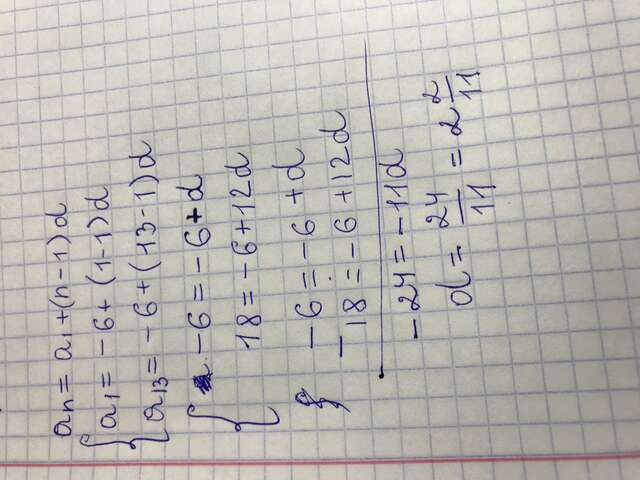 an = a1 + (n-1)d
{ a1 = -6 + (1-1)d
a13 = -6 + (13-1)d
{ -6 = -6 + d
18 = -6 + 12d
-6 = -6 + d
- 18 = -6 + 12d
-24 = -11d
d = 24/11 = 2 2/11